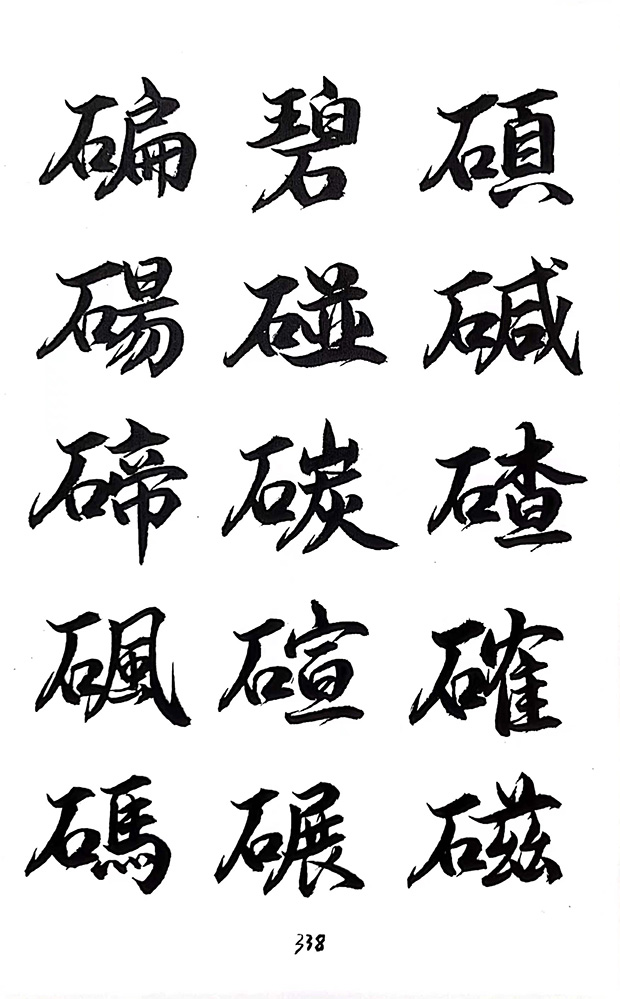 碥碧碩
碭碰碱
碲碳碴
碸碹確
碼碾磁
338